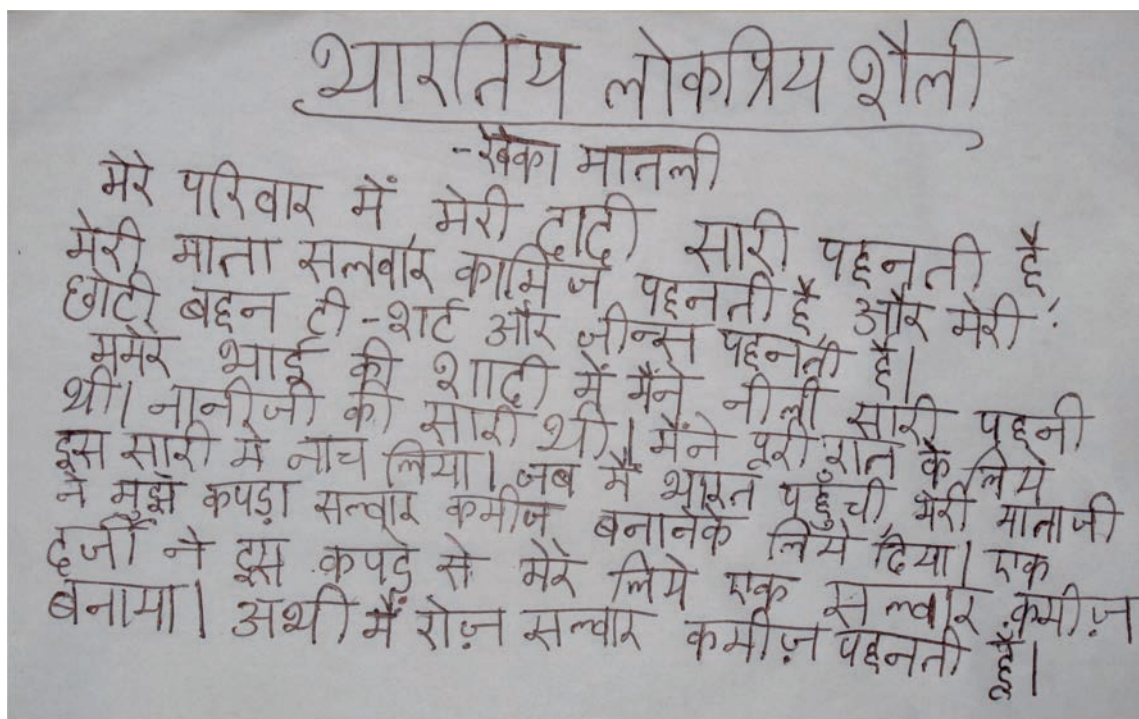 भारतिय लोकप्रिय शैली
मातली
मेरे परिवार में मेरी दादी सारी पहनती है,
मेरी माता सलवार कामिज पहनती है और मेरी
छोटी बहन टी-शर्ट और जीन्स पहनती है।
ममेरे भाई की शादी में मैंने नीली सारी पहनी
थी। नानीजी की सारी थी। मैंने पूरी रात के लिये
इस सारी में नाच लिया। जब मैं भारत पहुँची मेरी माताजी
ने मुझे कपड़ा सल्वार कमीज बनानेके लिये दिया। एक
दर्जी ने इस कपड़े से मेरे लिये एक सल्वार कमीज़
बनाया। अभी मैं रोज़ सल्वार कमीज़ पहनती हूँ।